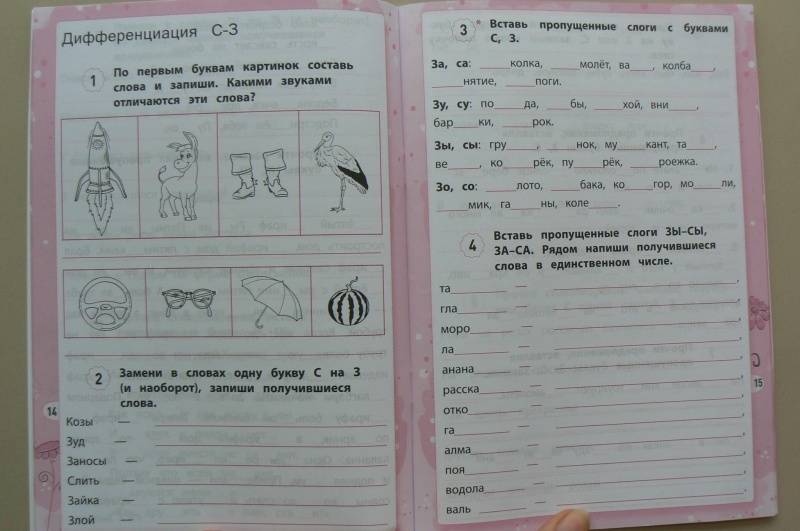 Дифференциация С-З
1 По первым буквам картинок составь
слова и запиши. Какими звуками
отличаются эти слова?
2 Замени в словах одну букву С на З
(и наоборот), запиши получившиеся
слова.
Козы —
Зуд —
Заносы —
Слить —
Зайка —
Злой —
14
3* Вставь пропущенные слоги с буквами
С, З.
За, са: ____колка, ____молёт, ва____, колба____,
____нятие, ____поги.
Зу, су: по____да, ____бы, ____хой, вни____,
бар____ки, ____рок.
Зы, сы: гру____, ____нок, му____кант, та____,
ве____, ко____рёк, пу____рёк, ____роежка.
Зо, со: ____лото, ____бака, ко____гор, мо____ли,
____мик, га____ны, коле____.
4 Вставь пропущенные слоги ЗЫ–СЫ,
ЗА–СА. Рядом напиши получившиеся
слова в единственном числе.
та____ — ____,
гла____ — ____,
моро____ — ____,
ла____ — ____,
анана____ — ____,
расска____ — ____,
отко____ — ____,
га____ — ____,
алма____ — ____,
поя____ — ____,
водола____ — ____,
валь____ — ____.
15